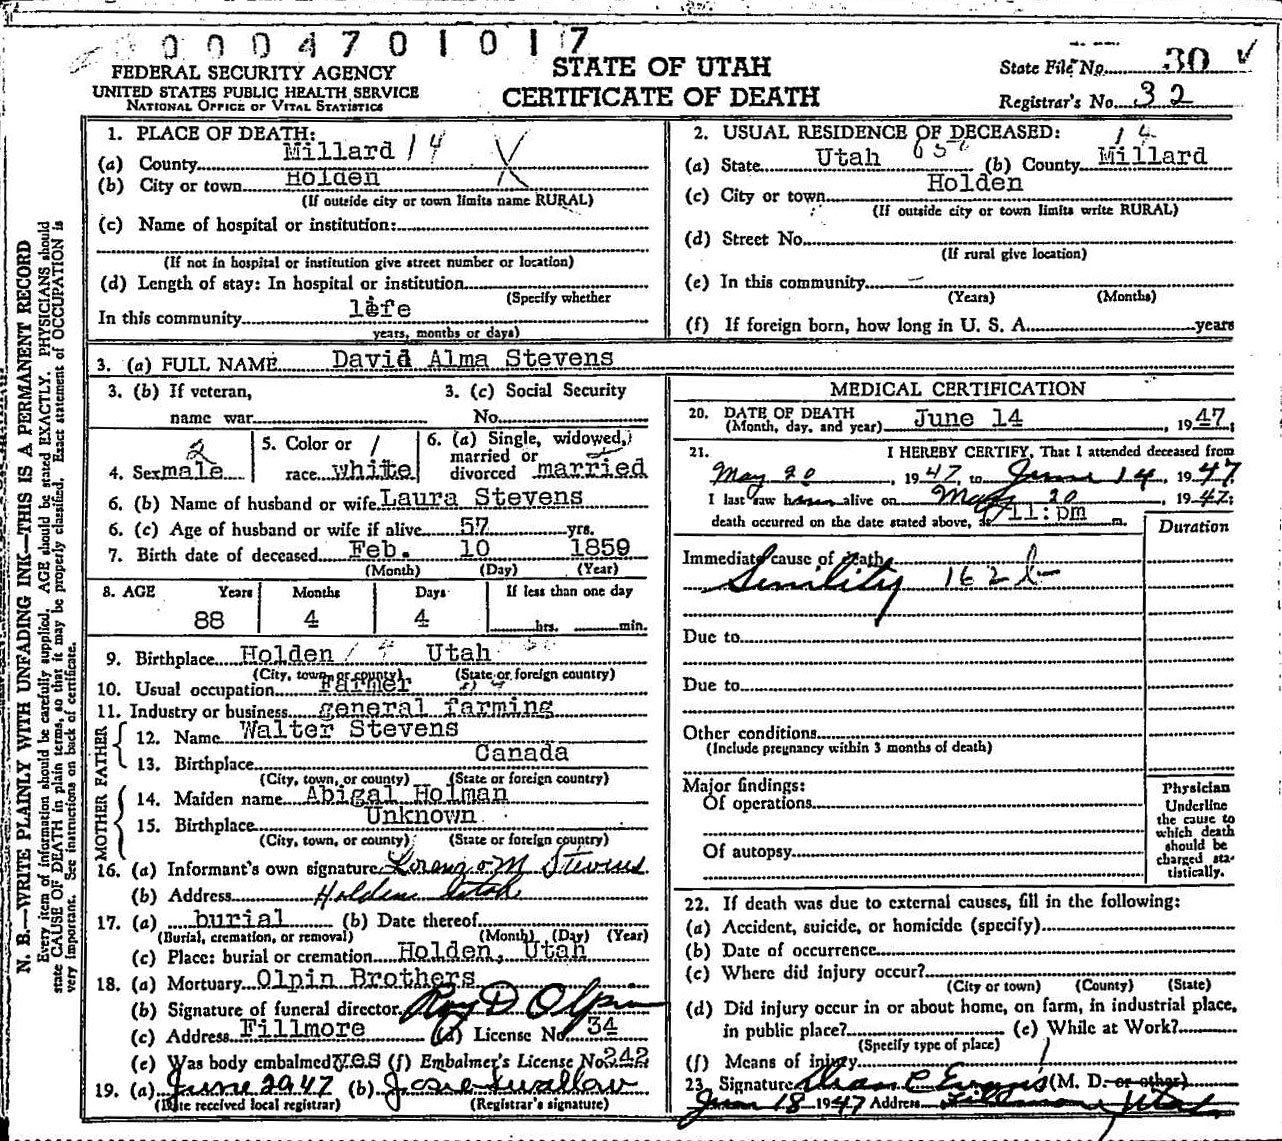 00004701017
FEDERAL SECURITY AGENCY
UNITED STATES PUBLIC HEALTH SERVICE
NATIONAL OFFICE OF VITAL STATISTICS
STATE OF UTAH
CERTIFICATE OF DEATH
State File No. 30
Registrar's No. 32
N. B.—WRITE PLAINLY WITH UNFADING INK—THIS IS A PERMANENT RECORD
Every item of information should be carefully supplied. AGE should be stated EXACTLY. PHYSICIANS should
state CAUSE OF DEATH in plain terms, so that it may be properly classified. Exact statement of OCCUPATION is
very important. See instructions on back of certificate.
1. PLACE OF DEATH:
(a) County Millard 14
(b) City or town Holden
(If outside city or town limits name RURAL)
(c) Name of hospital or institution:
(If not in hospital or institution give street number or location)
(d) Length of stay: In hospital or institution
(Specify whether
In this community life
years, months or days)
2. USUAL RESIDENCE OF DECEASED: 14
(a) State Utah (b) County Millard
(c) City or town Holden
(If outside city or town limits write RURAL)
(d) Street No.
(If rural give location)
(e) In this community
(Years) (Months)
(f) If foreign born, how long in U. S. A. years
3. (a) FULL NAME David Alma Stevens
3. (b) If veteran,
name war
3. (c) Social Security
No.
2
4. Sex male
5. Color or /
race white
6. (a) Single, widowed,
married or
divorced married
6. (b) Name of husband or wife Laura Stevens
6. (c) Age of husband or wife if alive 57 yrs.
7. Birth date of deceased Feb. 10 1859
(Month) (Day) (Year)
8. AGE Years Months Days If less than one day
88 4 4 hrs. min.
9. Birthplace Holden 14 Utah
(City, town or county) (State or foreign country)
10. Usual occupation Farmer
11. Industry or business general farming
FATHER
12. Name Walter Stevens
13. Birthplace Canada
(City, town, or county) (State or foreign country)
MOTHER
14. Maiden name Abigal Holman
15. Birthplace Unknown
(City, town, or county) (State or foreign country)
16. (a) Informant's own signature Lorenzo M Stevens
(b) Address Holden Utah
17. (a) burial (b) Date thereof
(Burial, cremation, or removal) (Month) (Day) (Year)
(c) Place: burial or cremation Holden, Utah
18. (a) Mortuary Olpin Brothers
(b) Signature of funeral director Roy D Olpin
(c) Address Fillmore (d) License No. 34
(e) Was body embalmed yes (f) Embalmer's License No. 242
19. (a) June 29 47 (b) Josie Swallow
(Date received local registrar) (Registrar's signature)
MEDICAL CERTIFICATION
20. DATE OF DEATH
(Month, day, and year) June 14, 1947;
21. I HEREBY CERTIFY, That I attended deceased from
May 20, 1947, to June 14, 1947
I last saw him alive on May 20, 1947;
death occurred on the date stated above, at 11:pm m.
Duration
Immediate cause of death
Senility 162 b
Due to
Due to
Other conditions
(Include pregnancy within 3 months of death)
Major findings:
Of operations
Of autopsy
Physician
Underline
the cause to
which death
should be
charged sta-
tistically.
22. If death was due to external causes, fill in the following:
(a) Accident, suicide, or homicide (specify)
(b) Date of occurrence
(c) Where did injury occur?
(City or town) (County) (State)
(d) Did injury occur in or about home, on farm, in industrial place,
in public place? (e) While at Work?
(Specify type of place)
(f) Means of injury
23. Signature Dean C Evans (M. D. or other)
June 18 1947 Address Fillmore, Utah